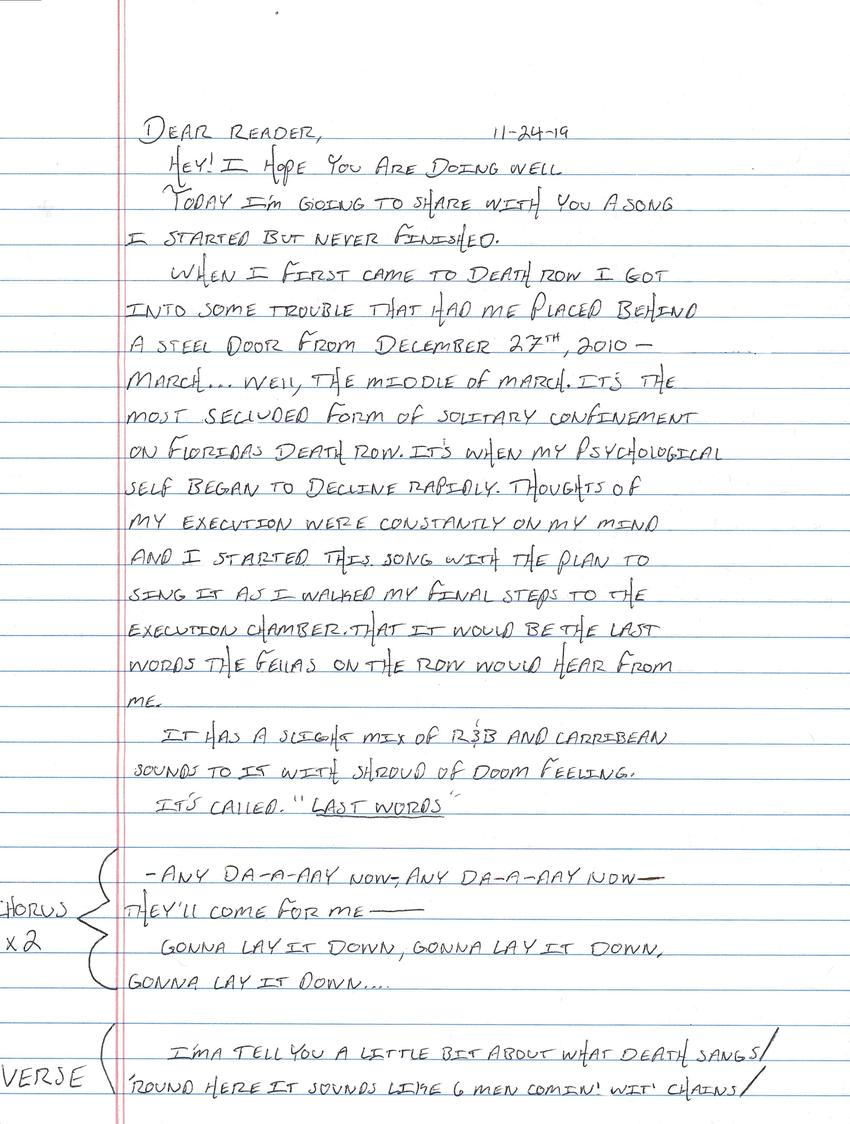 DEAR READER, 11-24-19
HEY! I HOPE YOU ARE DOING WELL
TODAY I'm GOING TO SHARE WITH YOU A SONG
I STARTED BUT NEVER FINISHED.
WHEN I FIRST CAME TO DEATH ROW I GOT
INTO SOME TROUBLE THAT HAD ME PLACED BEHIND
A STEEL DOOR FROM DECEMBER 27TH, 2010 —
MARCH... WELL, THE MIDDLE OF MARCH. IT'S THE
MOST SECLUDED FORM OF SOLITARY CONFINEMENT
ON FLORIDAS DEATH ROW. IT'S WHEN MY PSYCHOLOGICAL
SELF BEGAN TO DECLINE RAPIDLY. THOUGHTS OF
MY EXECUTION WERE CONSTANTLY ON MY MIND
AND I STARTED THIS SONG WITH THE PLAN TO
SING IT AS I WALKED MY FINAL STEPS TO THE
EXECUTION CHAMBER. THAT IT WOULD BE THE LAST
WORDS THE FELLAS ON THE ROW WOULD HEAR FROM
ME.
IT HAS A SLIGHT MIX OF R&B AND CARRIBEAN
SOUNDS TO IT WITH SHROUD OF DOOM FEELING.
IT'S CALLED. "LAST WORDS"
-ANY DA-A-AAY NOW-, ANY DA-A-AAY NOW—
HORUS THEY'LL COME FOR ME —
x2 GONNA LAY IT DOWN, GONNA LAY IT DOWN,
GONNA LAY IT DOWN....
I'MA TELL YOU A LITTLE BIT ABOUT WHAT DEATH SANGS/
VERSE 'ROUND HERE IT SOUNDS LIKE 6 MEN COMIN' WIT' CHAINS/